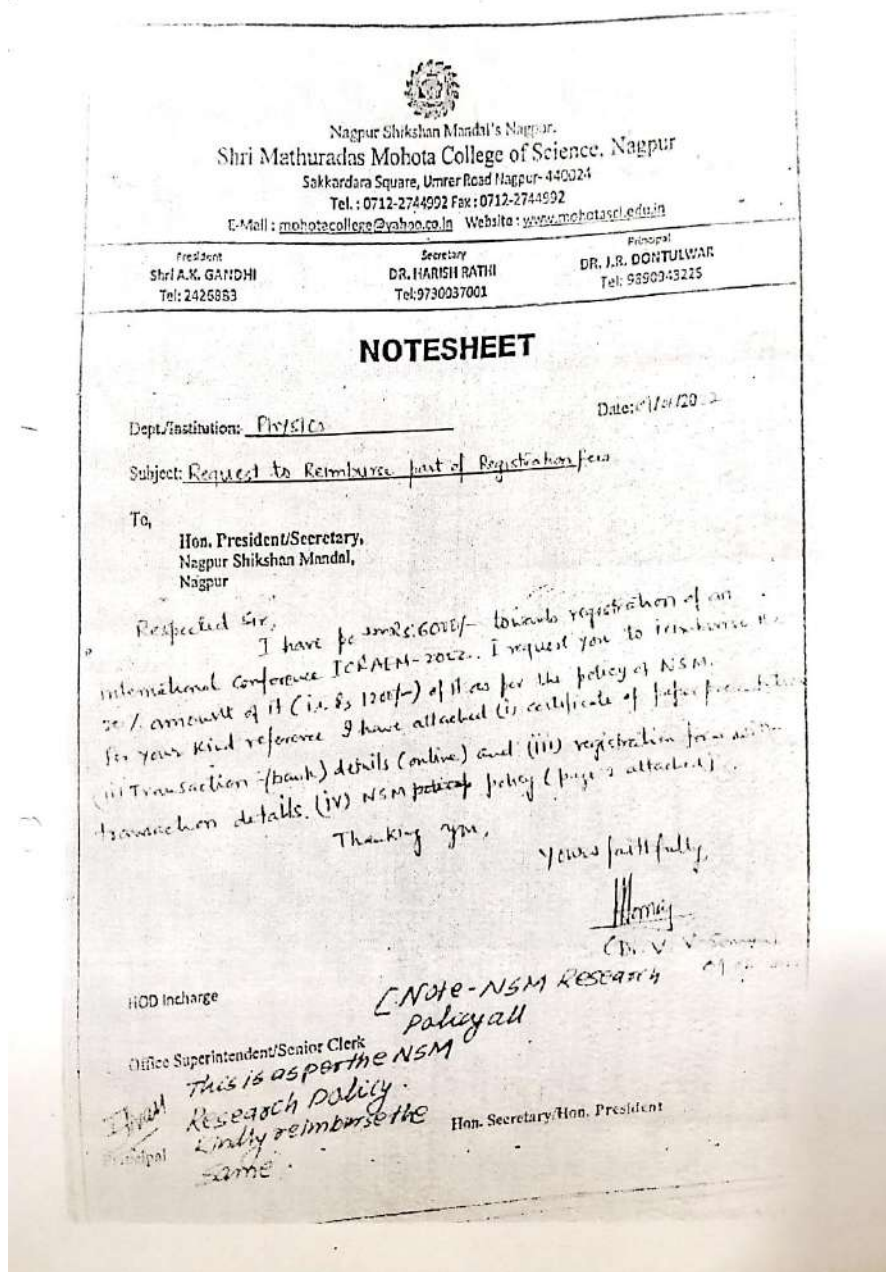 Nagpur Shikshan Mandal's Nagpur.
Shri Mathuradas Mohota College of Science, Nagpur
Sakkardara Square, Umrer Road Nagpur- 440024
Tel. : 0712-2744992 Fax : 0712-2744992
E-Mail : mohotacollege@yahoo.co.in Website : www.mohotasci.edu.in
President Secretary Principal
Shri A.K. GANDHI DR. HARISH RATHI DR. J.R. DONTULWAR
Tel: 2425883 Tel:9730037001 Tel:
NOTESHEET
Dept./Institution: Physics Date:
Subject: Request to Reimburse part of Registration fees
To,
Hon. President/Secretary,
Nagpur Shikshan Mandal,
Nagpur
Respected Sir,
I have towards registration of an
international conference ICRAEM-2022.. I request you to reimburse
20% amount of it (i.e. Rs 1200/-) of it as per the policy of NSM.
for your kind reference I have attached (i) certificate of paper presentation
(ii) Transaction (bank) details (online) and (iii) registration form with
transaction details. (iv) NSM policy (page 2 attached).
Thanking you,
Yours faithfully,
(Dr. V. V.
HOD Incharge
[Note-NSM Research
Policy all
Office Superintendent/Senior Clerk
This is as per the NSM
Research Policy.
Kindly reimburse the
Principal Hon. Secretary/Hon. President
same.